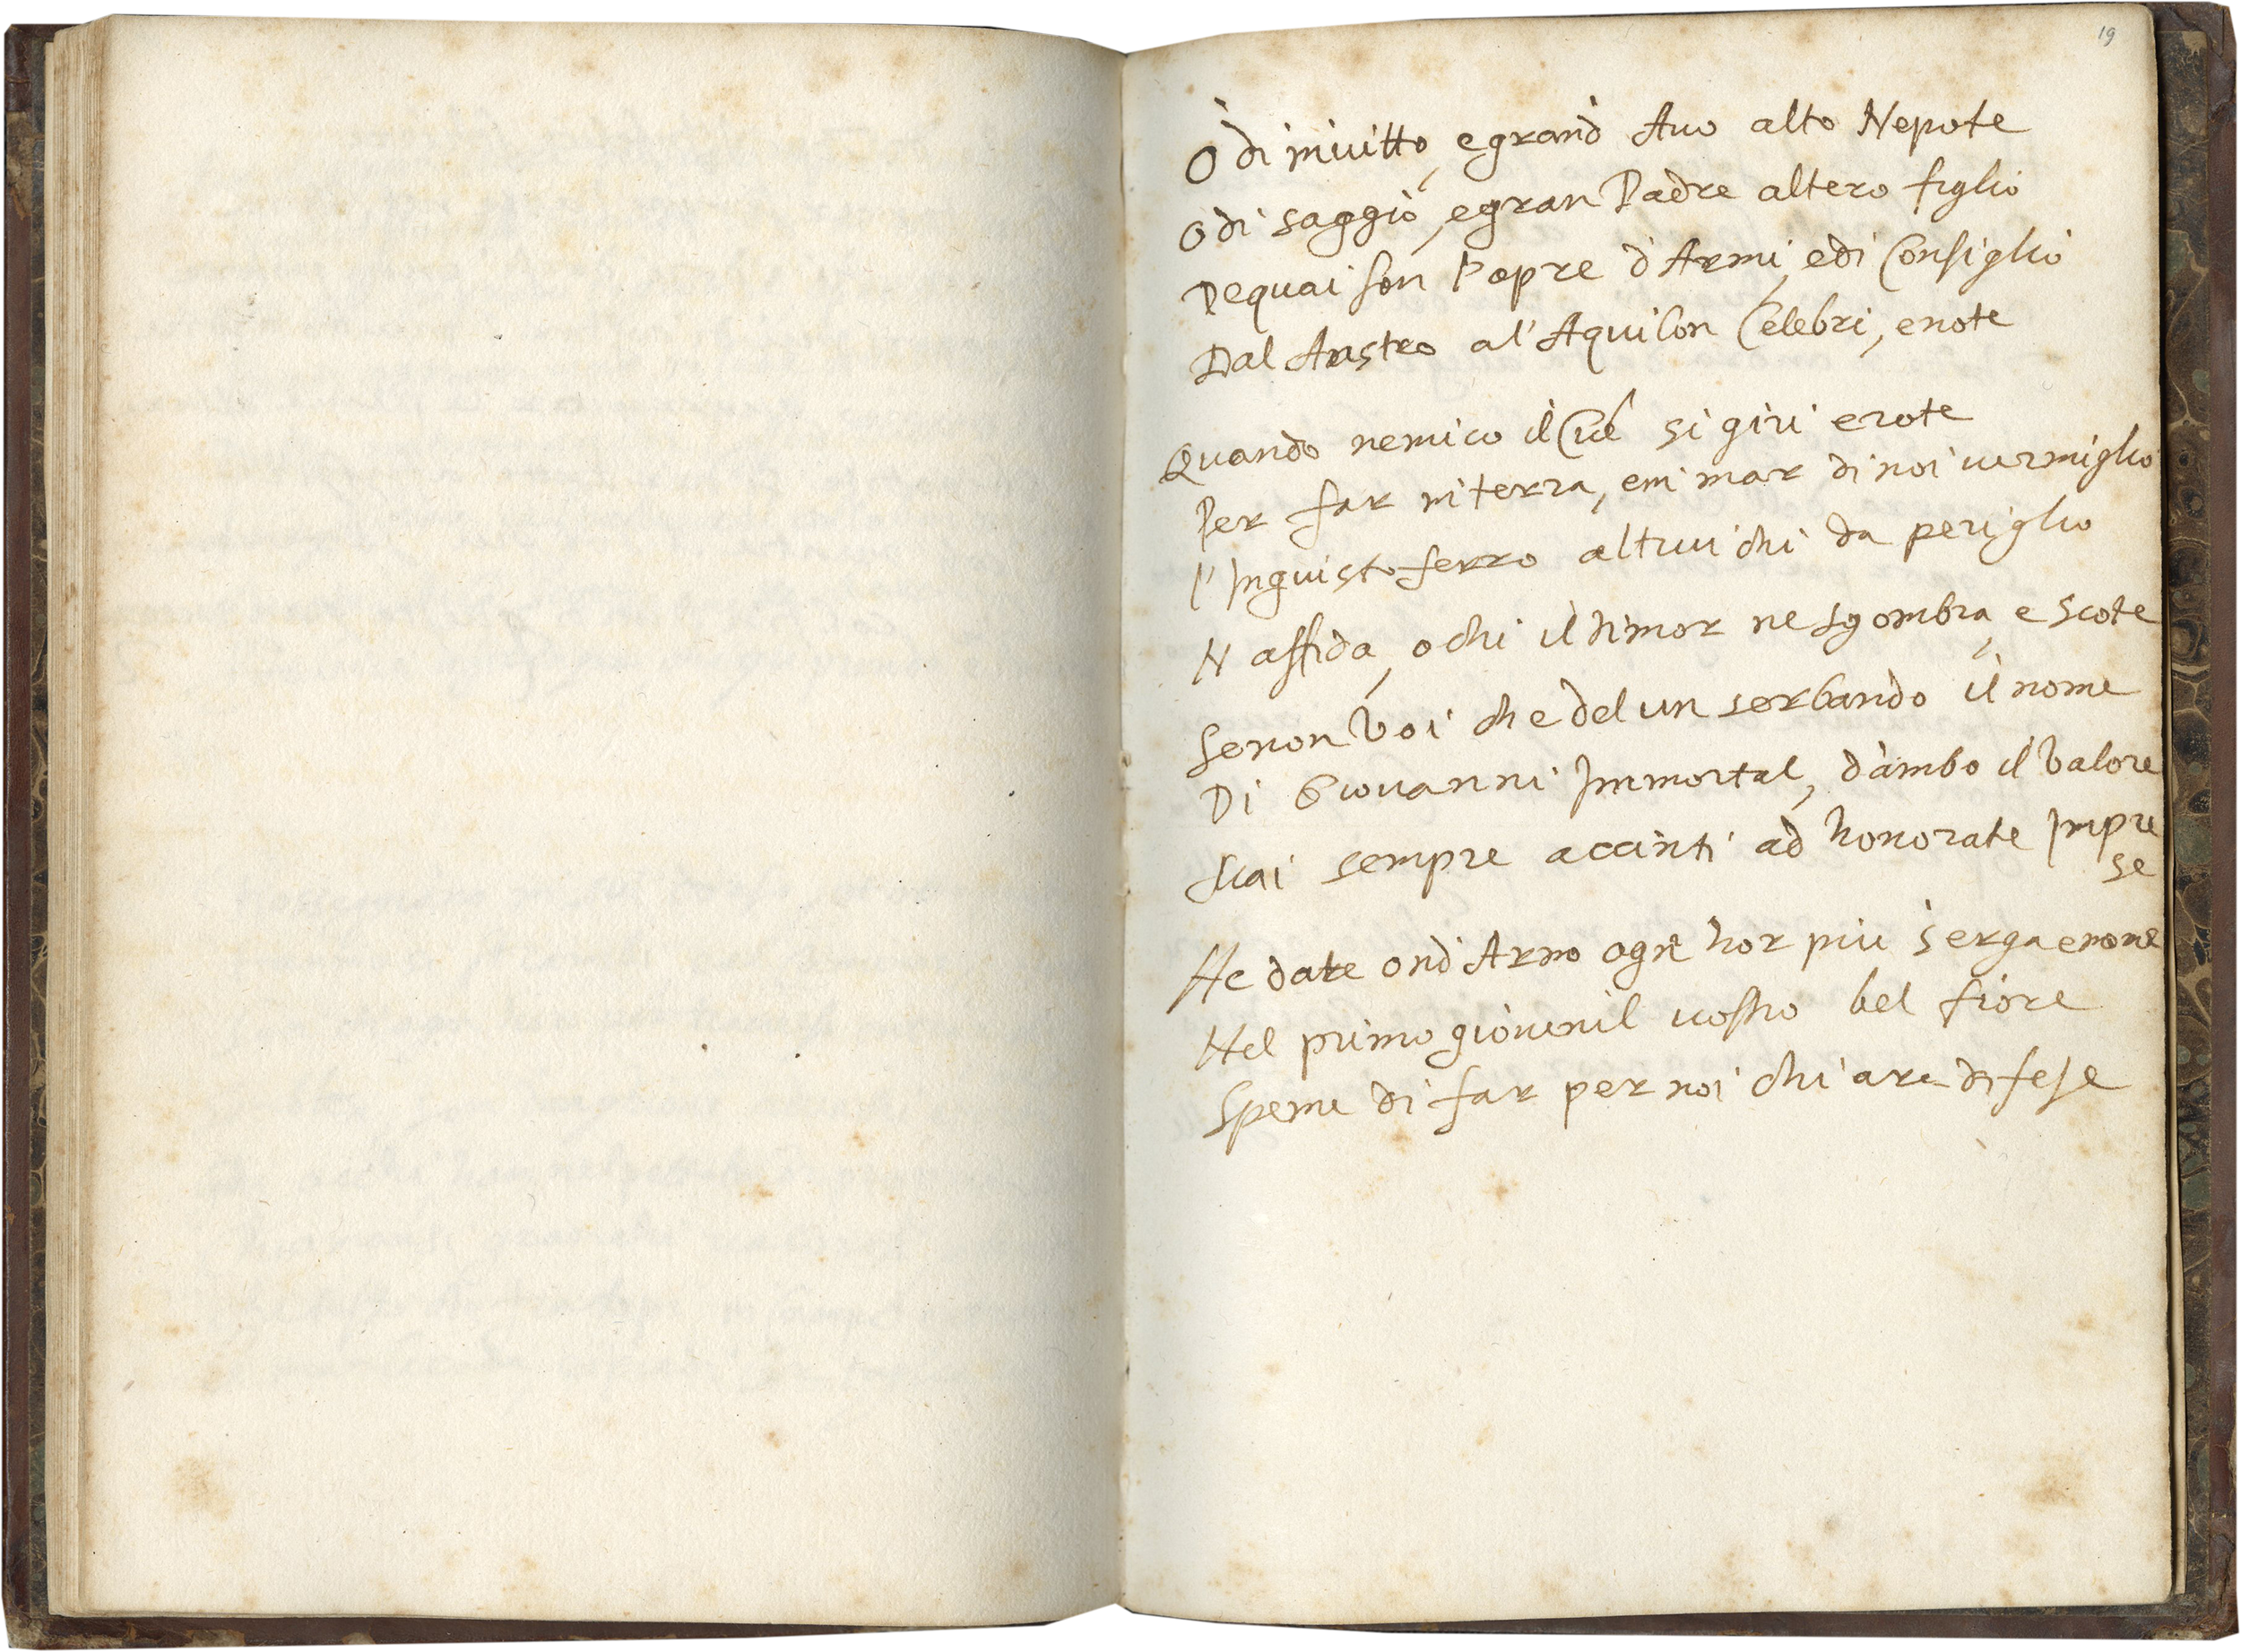 19
O di invitto, e grand Auo alto Nepote
O di saggio, e gran Padre altero figlio
De quai son l'opre d'Armi, e di Consiglio
Dal Austro al'Aquilon Celebri, e note
Quando nemico il Ciel si giri e rote
Per far in terra, e in mar di noi uermiglio
l'Ingiusto ferro altrui chi da periglio
N affida, o chi il timor ne sgombra, e scote
Se non Voi che del un serbando il nome
Di Giouanni Immortal, d'ambo il Valore
sempre accinti ad honorate Impre
se
Ne date ond Arno ogn hor piu s'erga e nome
Nel primo giouenil uostro bel fiore
Speme di far per noi chiare difese